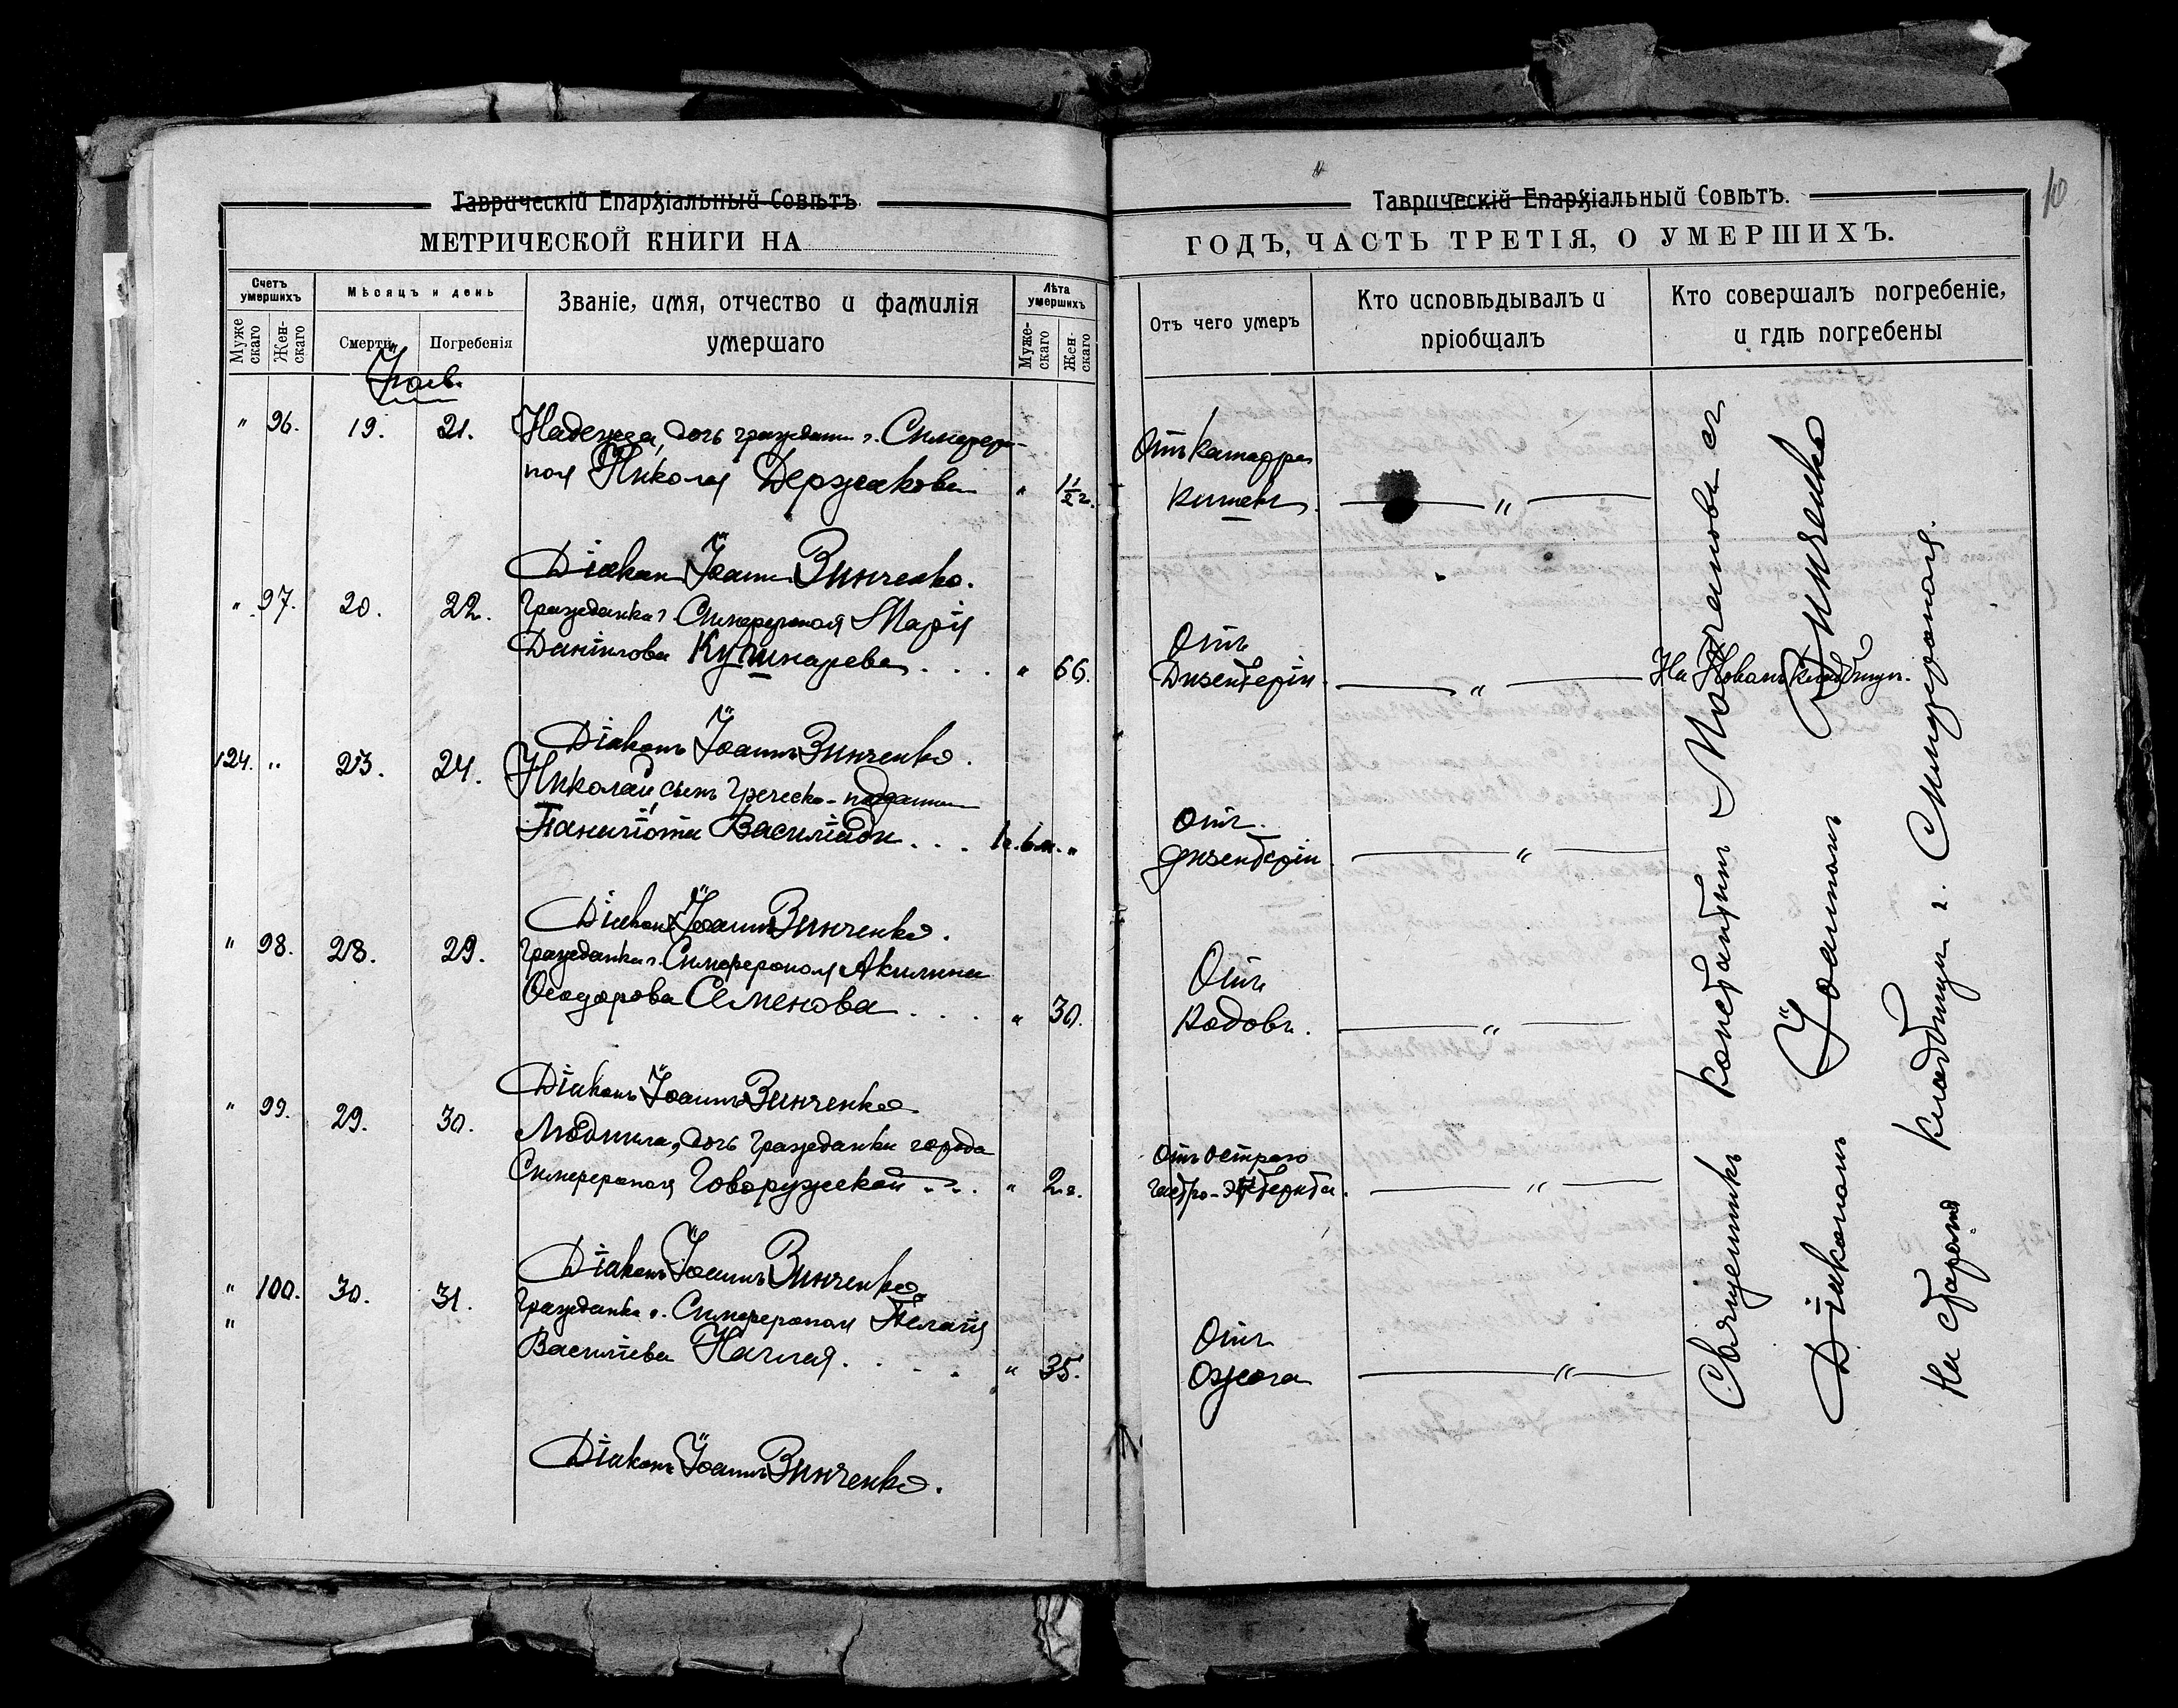 Таврическій Епархіальный Совѣтъ
МЕТРИЧЕСКОЙ КНИГИ НА
Счетъ умершихъ
Мужескаго
Женскаго
Мѣсяцъ и день
Смерти
Погребенія
Званіе, имя, отчество и фамилія
умершаго
Лѣта умершихъ
Мужескаго
Женскаго
" 96. 19. 21. Надежда, дочь граждан. г. Симферо-
поля Николая Держакова " 1 1/2 г.
Діакон Іоанн Зинченко.
" 97. 20. 22. Гражданка г. Симферополя Марія
Даніилова Кушнарева . . . " 66.
Діаконъ Іоаннъ Зинченко.
124. " 23. 24. Николай, сынъ Греческо-подданн
Панаіота Василіади . . . 1г. 6м. "
Діаконъ Іоаннъ Зинченко.
" 98. 28. 29. Гражданка г. Симферополя Акилина
Ѳеодорова Семенова . . . " 30.
Діаконъ Іоаннъ Зинченко
" 99. 29. 30. Людмила, дочь гражданки города
Симферополя Говоружской . . . " 2 г.
Діаконъ Іоаннъ Зинченко
" 100. 30. 31. Гражданка г. Симферополя Пелагія
"
Василіева Наглая . . . " 35.
Діаконъ Іоаннъ Зинченко.
10
Таврическій Епархіальный Совѣтъ.
ГОДЪ, ЧАСТЬ ТРЕТІЯ, О УМЕРШИХЪ.
Отъ чего умеръ
Кто исповѣдывалъ и
пріобщалъ
Кто совершалъ погребеніе,
и гдѣ погребены
Отъ катарра
кишекъ. "
Отъ
Дизентеріи. "
На Новомъ кладбищѣ.
Отъ
дизентеріи "
Отъ
родовъ. "
Отъ остраго
гастро-энтерита. "
Отъ
ожога "
Священникъ Константинъ съ
Діакономъ Іоанномъ Зинченко
На старомъ кладбищѣ г. Симферополя.